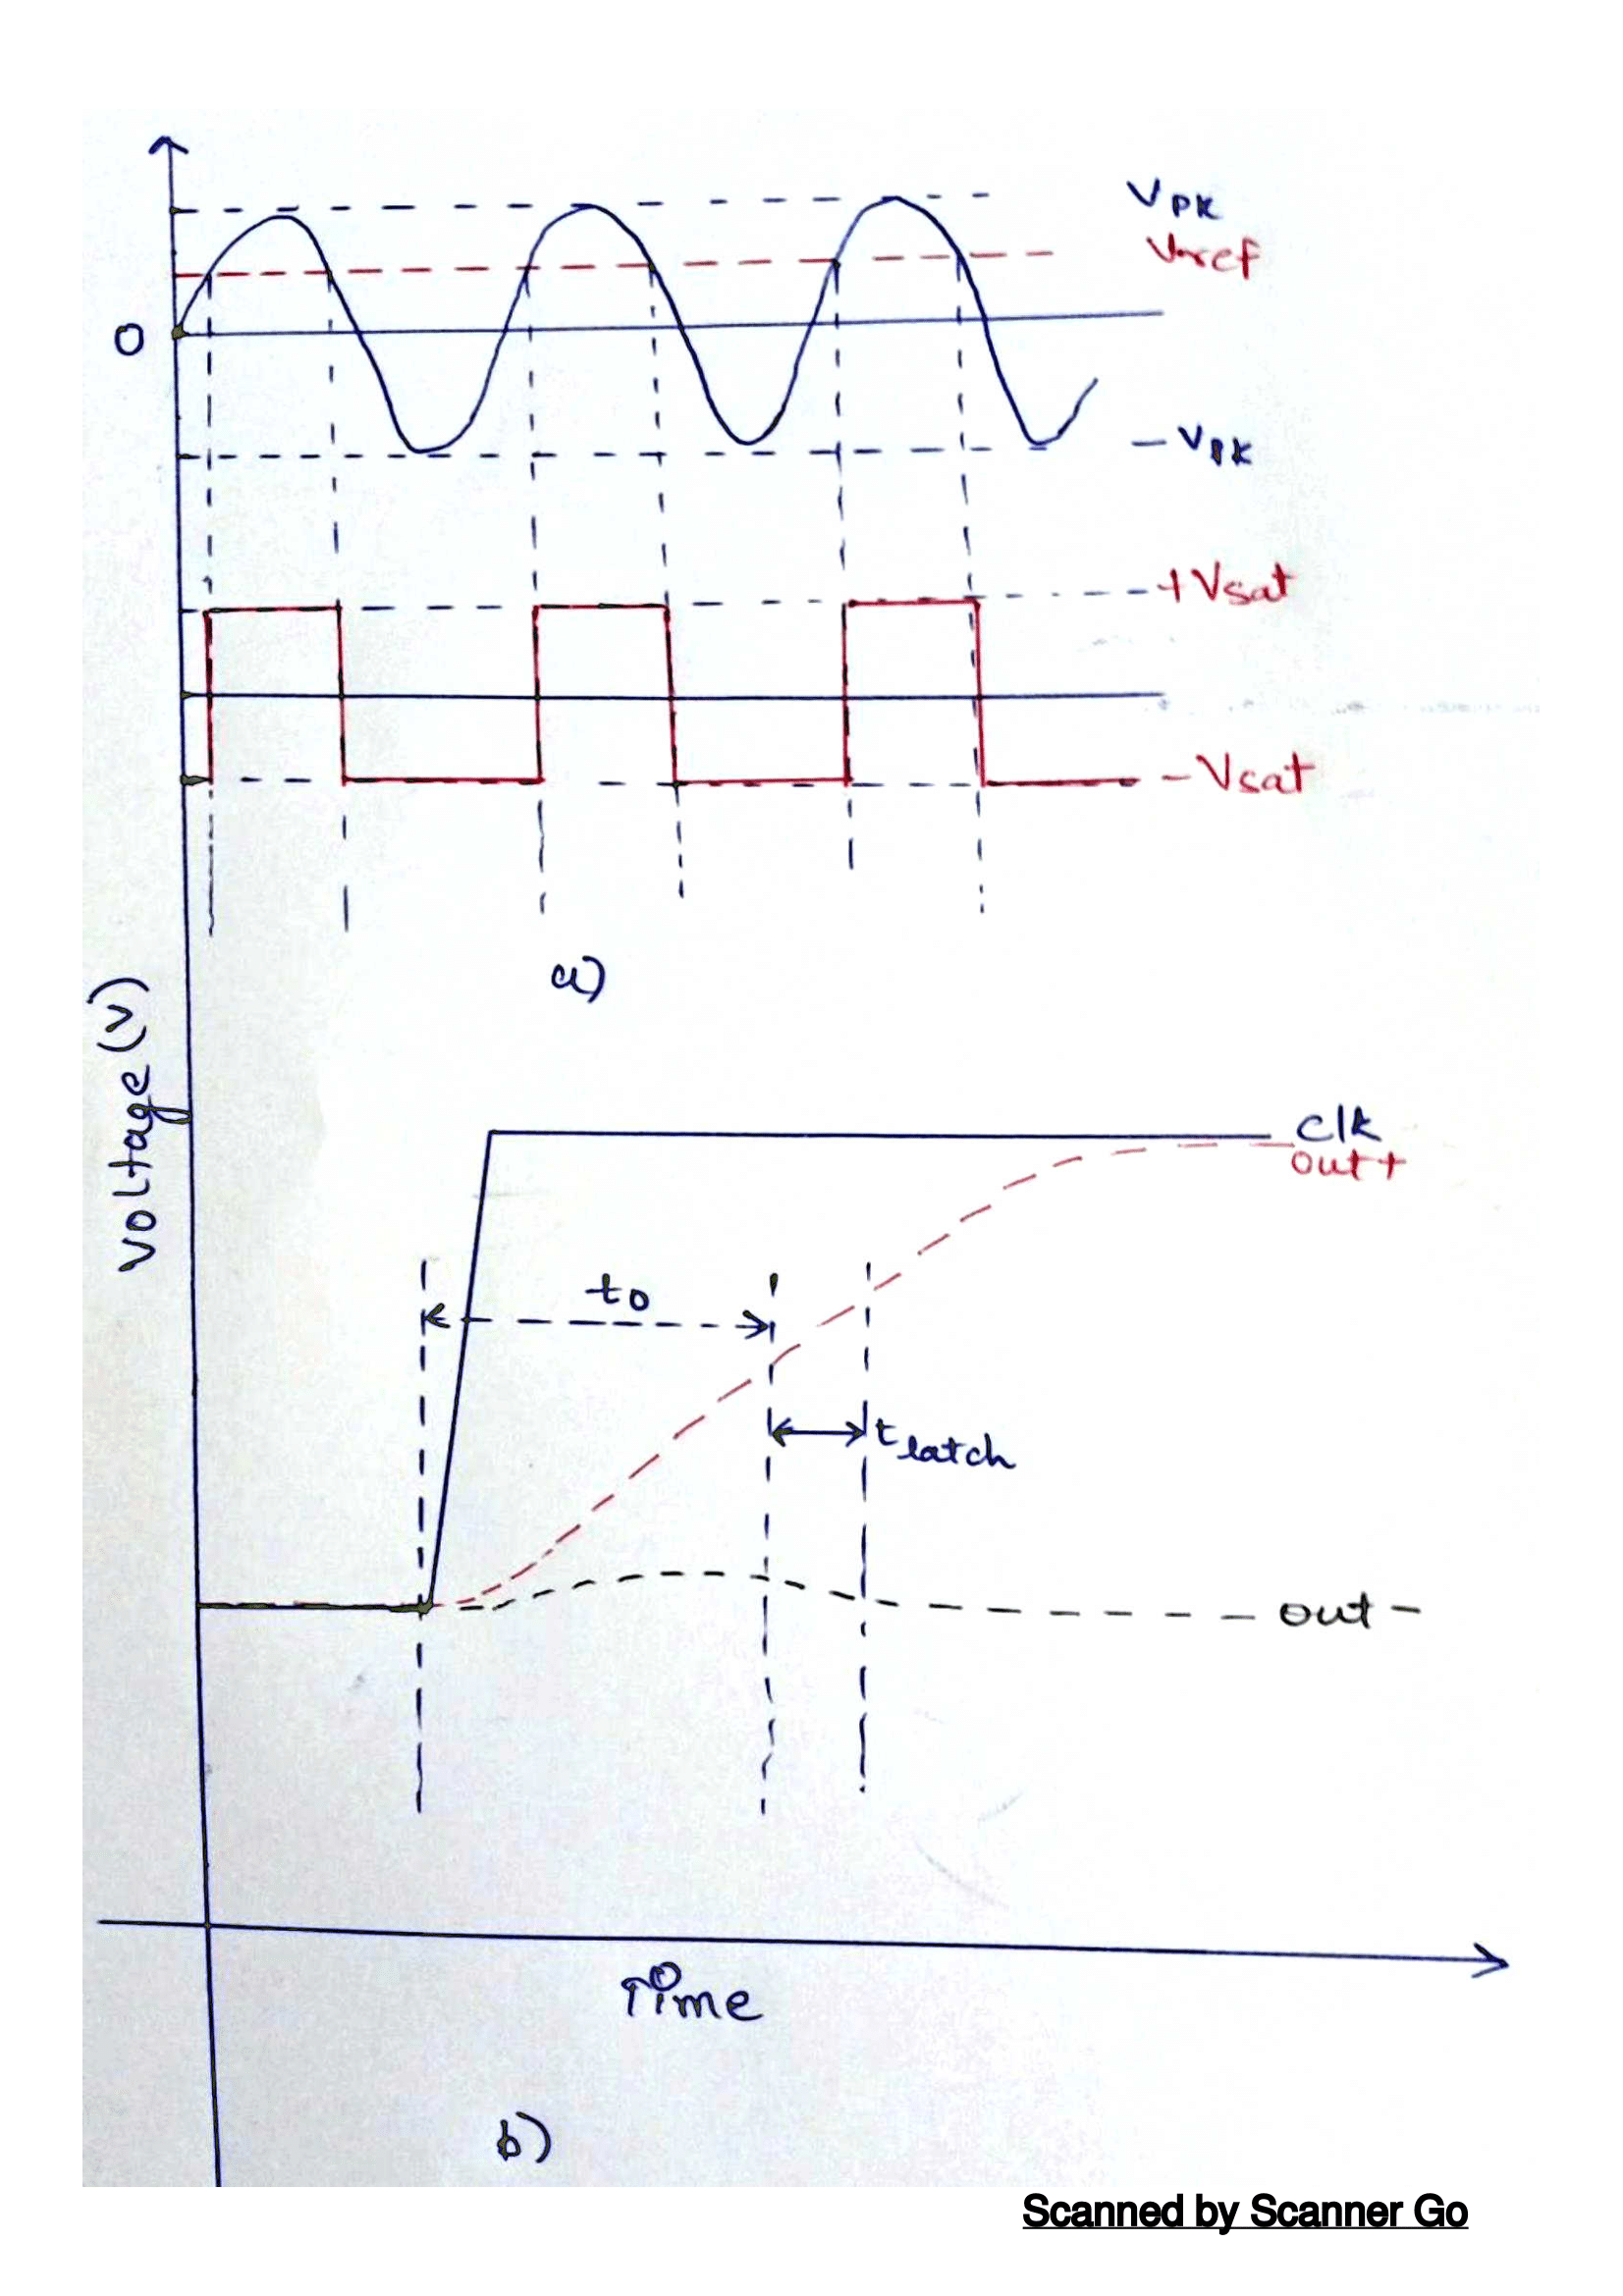 VPK
Vref
0
-VPK
+Vsat
-Vsat
a)
Voltage (V)
Clk
out+
to
tlatch
out-
Time
b)
Scanned by Scanner Go